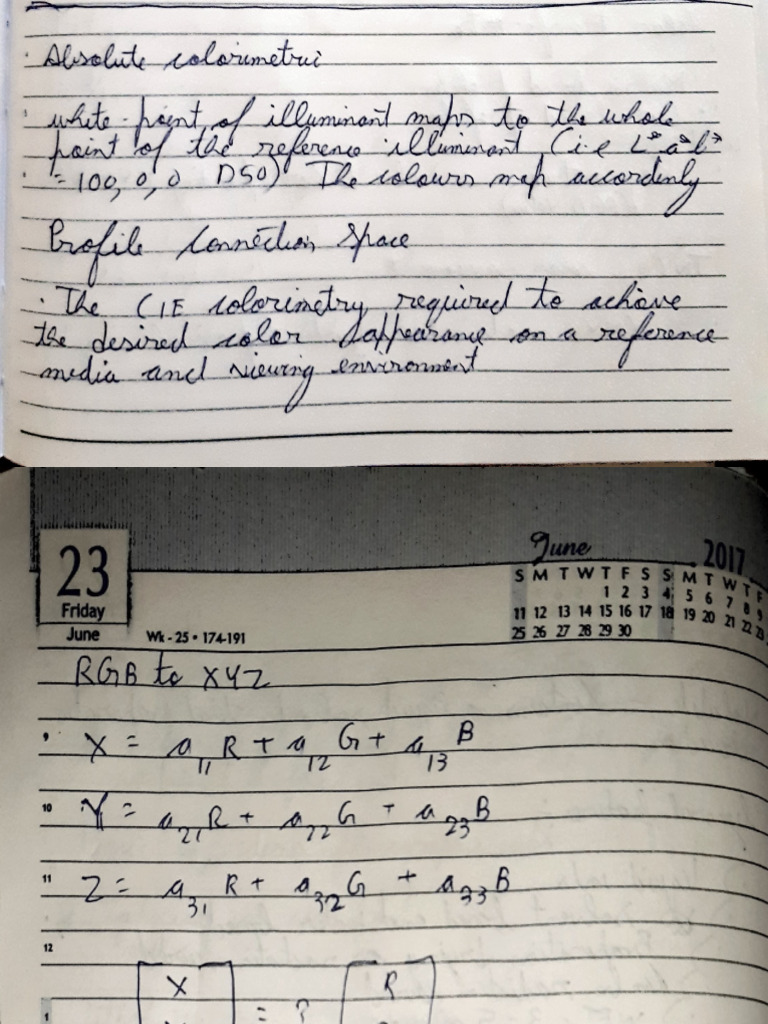 Absolute colorimetric
white-point of illuminant maps to the whole
point of the reference illuminant (i.e L*a*b*
= 100, 0, 0 D50) The colours map accordenly
Profile Connection Space
· The CIE colorimetry required to achieve
the desired color appearance on a reference
media and viewing environment
23
Friday
June
Wk - 25 • 174-191
June 2017
S M T W T F S S M T W T F
1 2 3 4 5 6 7 8 9
11 12 13 14 15 16 17 18 19 20 21 22 23
25 26 27 28 29 30
RGB to XYZ
9 X = a11 R + a12 G + a13 B
10 Y = a21 R + a22 G + a23 B
11 Z = a31 R + a32 G + a33 B
12
X R
1 = ?